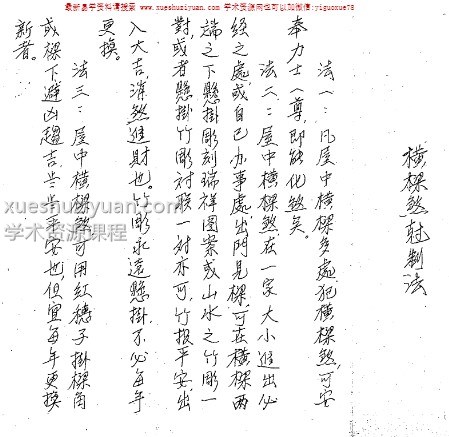 最新易学资料请搜索 www.xueshuziyuan.com 学术资源网也可以加微信:yiguoxue78
橫樑煞尅制法
法一:凡屋中橫樑多處犯橫樑煞,可安
奉力士一尊,即能化煞矣。
法二:屋中橫樑煞在一家大小進出必
經之處或自己办事處,出門見樑,可在橫樑兩
端之下懸掛彫刻瑞祥图案或山水之竹彫一
對,或者懸掛竹彫对联一对亦可,竹报平安,出
入大吉,消煞進財也。竹彫永遠懸掛不必每年
更换。
法三:屋中橫樑煞可用紅穗子掛樑角
或樑下避凶趨吉,步步平安也,但宜每年更換
新者。
xueshuziyuan.com
学术资源课程